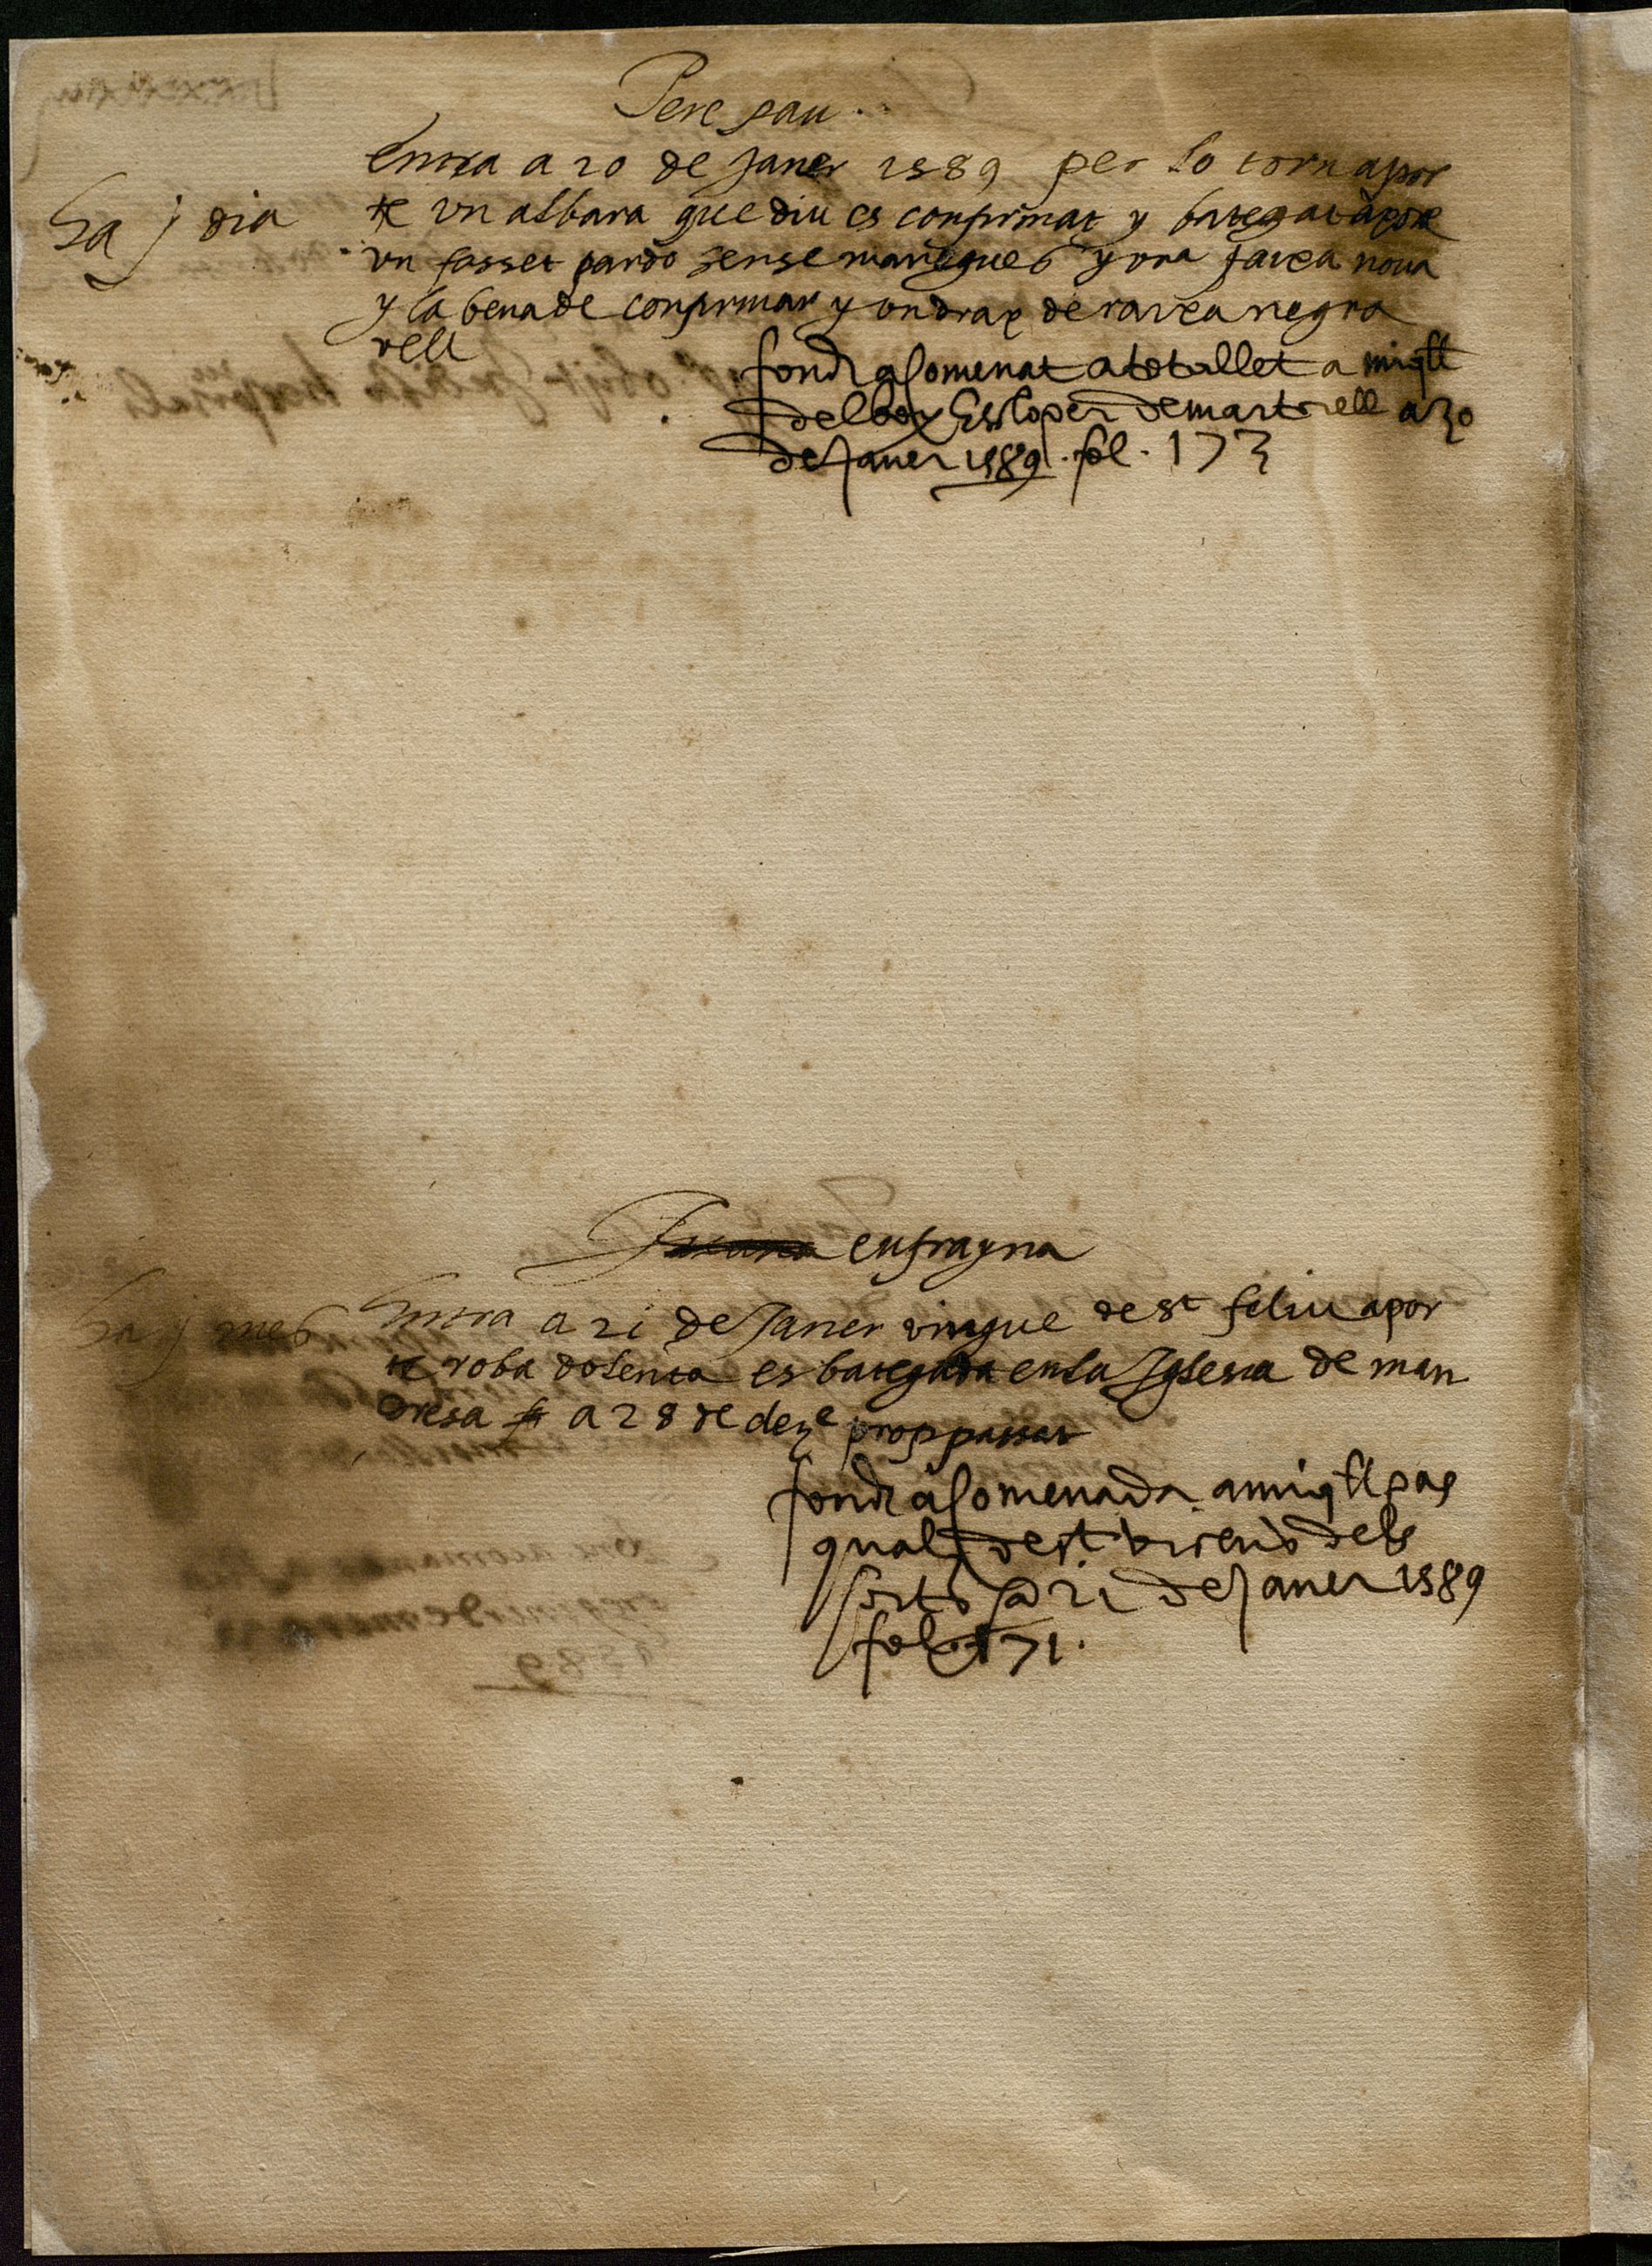 Pere pau
Entra a 20 de Janer 1589 per lo torn apor
Ha j dia
te vn albara que diu es confirmat y bategat aporte
vn sasset pardo sense manegues y vna faxa noua
y la bena de confirmar y vn drap de raxa negra
vell
fonch acomenat a a miqll
de martorell a 30
de Janer 1589 . fol . 173
Juana eufrayna
Ha j mes
Entra a 21 de Janer vingue de st feliu apor
te roba dolenta es bategada en la Iglesia de man
resa a 28 de deze proppassat
fonch acomenada a miqll pas
qual de st dels
orts a 21 de Janer 1589
fol 171 .